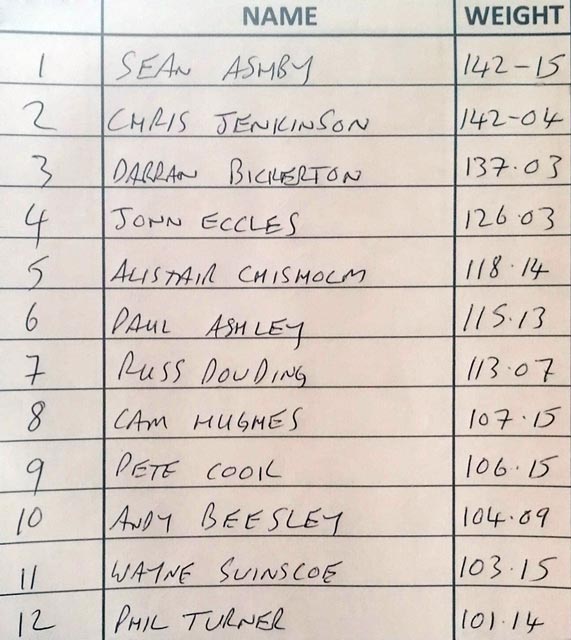 NAME WEIGHT
1 SEAN ASHBY 142-15
2 CHRIS JENKINSON 142-04
3 DARRAN BICKERTON 137.03
4 JOHN ECCLES 126.03
5 ALISTAIR CHISHOLM 118.14
6 PAUL ASHLEY 115.13
7 RUSS DOUDING 113.07
8 CAM HUGHES 107.15
9 PETE COOK 106.15
10 ANDY BEESLEY 104.09
11 WAYNE SWINSCOE 103.15
12 PHIL TURNER 101.14